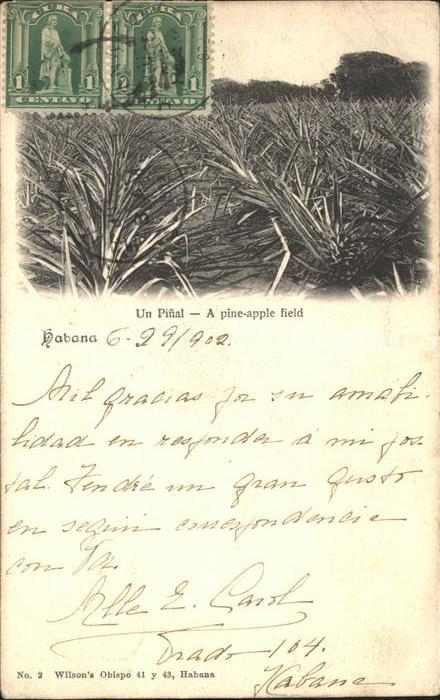 CUBA CUBA
1 1 1 1
CENTAVO CENTAVO
Un Piñal — A pine-apple field
Habana 6-29/902.
Mil gracias por su amabi-
lidad en responder á mi pos
tal. Tendré un gran gusto
en seguir correspondencia
con Vd.
Mlle E. Carol
Prado 104.
Habana
No. 2 Wilson's Obispo 41 y 43, Habana